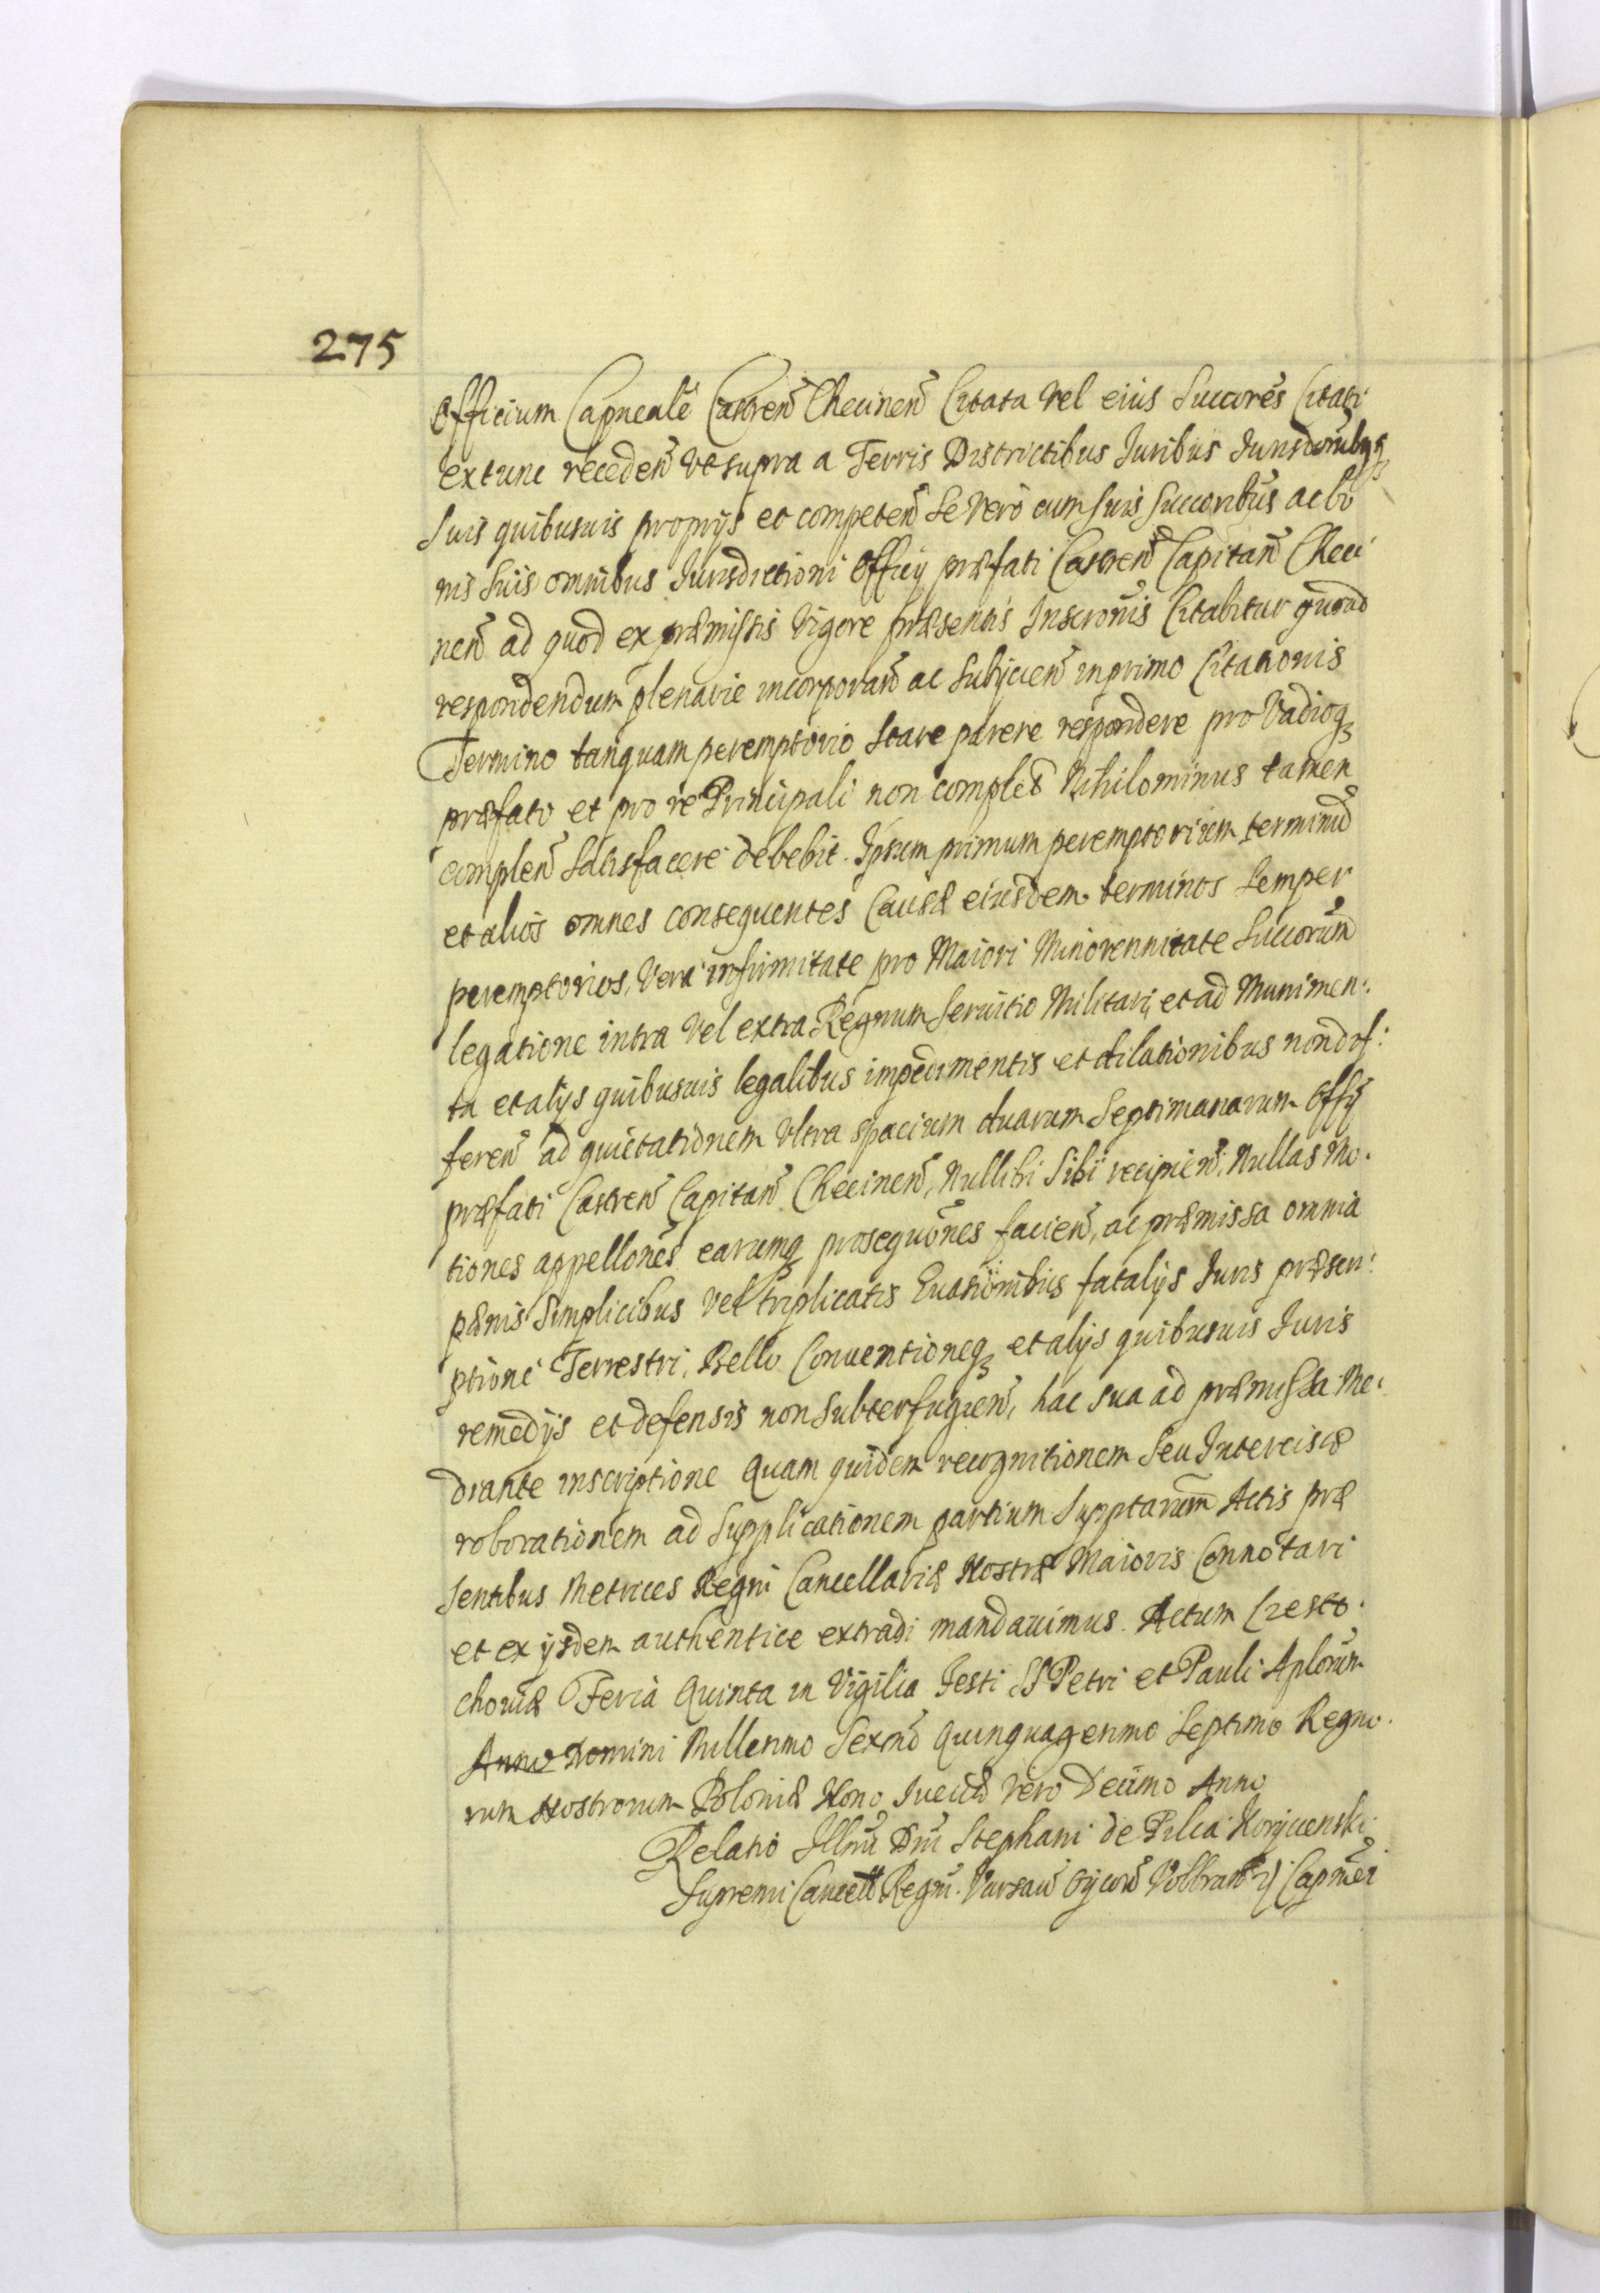 275
Officium Capneale Castren Checinen Citata vel eius Succores Citati
extunc receden ut supra a Terris Districtibus Iuribus Iurisdonibusq
suis quibusuis proprijs et competen se vero cum suis succoribus ac bo
nis suis omnibus Iurisdictioni Officij præfati Castren Capitan Checi
nen ad quod ex præmissis vigore præsentis Inscronis Citabitur quoad
respondendum plenarie incorporan ac subijcien in primo Citationis
Termino tanquam peremptorio stare parere respondere pro vadioq
præfato et pro re Principali non complet Nihilominus tamen
complen satisfacere debebit. Ipsum primum peremptorium terminum
et alios omnes consequentes Causæ eiusdem terminos semper
peremptorios, vera infirmitate pro Maiori Minorennitate Succorum
legatione intra vel extra Regnum seruitio Militari, et ad Munimen:
ta et alijs quibusuis legalibus impedimentis et dilationibus non dif:
feren ad quietationem ultra spacium duarum septimanarum Offij
præfati Castren Capitan Checinen, Nullibi sibi recipien, Nullas Mo:
tiones appellones earumq prosequones facien, ac præmissa omnia
pænis simplicibus vel triplicatis Euasionibus fatalijs Iuris præscri:
ptione Terrestri, Bello Conuentioneq et alijs quibusuis Iuris
remedijs et defensis non subterfugien, hac sua ad præmissa Me:
diante inscriptione Quam quidem recognitionem seu Intercisæ
roborationem ad supplicationem partium supptarum Actis præ
sentibus Metrices Regni Cancellariæ Nostræ Maioris Connotari
et ex ijsdem authentice extradi mandauimus. Actum Czesto:
chouiæ Feria Quinta in Vigilia Festi SS Petri et Pauli Aplorum
Anno Domini Millesimo Sexcno Quinquagesimo Septimo Regno:
rum Nostrorum Poloniæ Nono Sueciæ vero Decimo Anno
Relatio Illmi Dni Stephani de Pilca Korycienski
Supremi Cancell Regni. Varsaw Ojcow Capnei